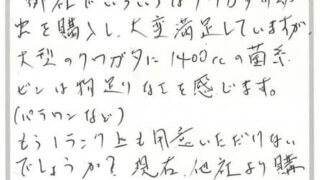 御社でいろいろなクワガタの幼
虫を購入し、大変満足していますが、
大型のクワガタに1400ccの菌糸
ビンは物足りなさを感じます。
(パラワンなど)
もう1ランク上も用意いただけない
でしょうか？現在、他社より購